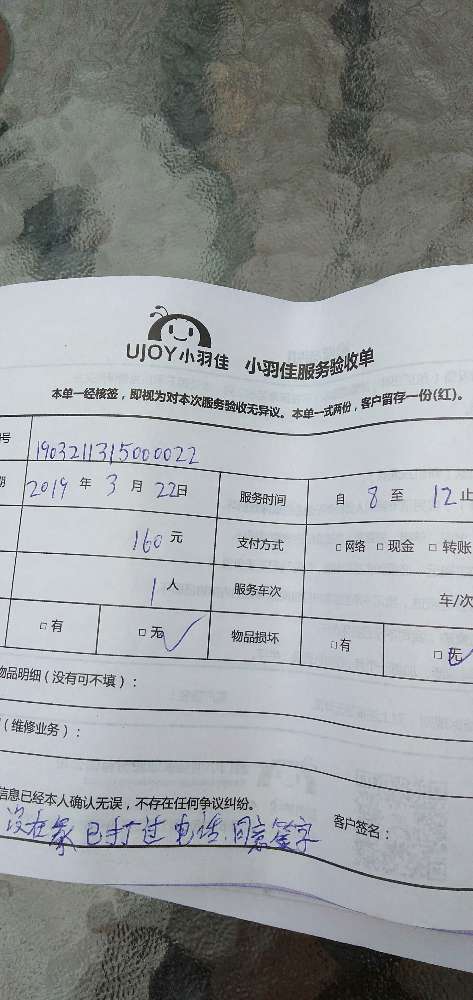 UJOY小羽佳 小羽佳服务验收单
本单一经核签，即视为对本次服务验收无异议。本单一式两份，客户留存一份(红)。
号 1903211315000022
期 2019 年 3 月 22日 服务时间 自 8 至 12 止
160 元 支付方式 □ 网络 □ 现金 □ 转账
1 人 服务车次 车/次
□ 有 □ 无 物品损坏 □ 有 □ 无
物品明细（没有可不填）：
（维修业务）：
信息已经本人确认无误，不存在任何争议纠纷。
没在家 已打过电话.同意签字 客户签名：